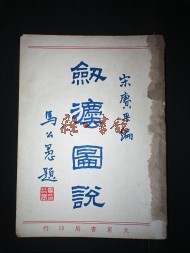 宋賡平編
劍灋圖說
馬公愚題
大東書局印行